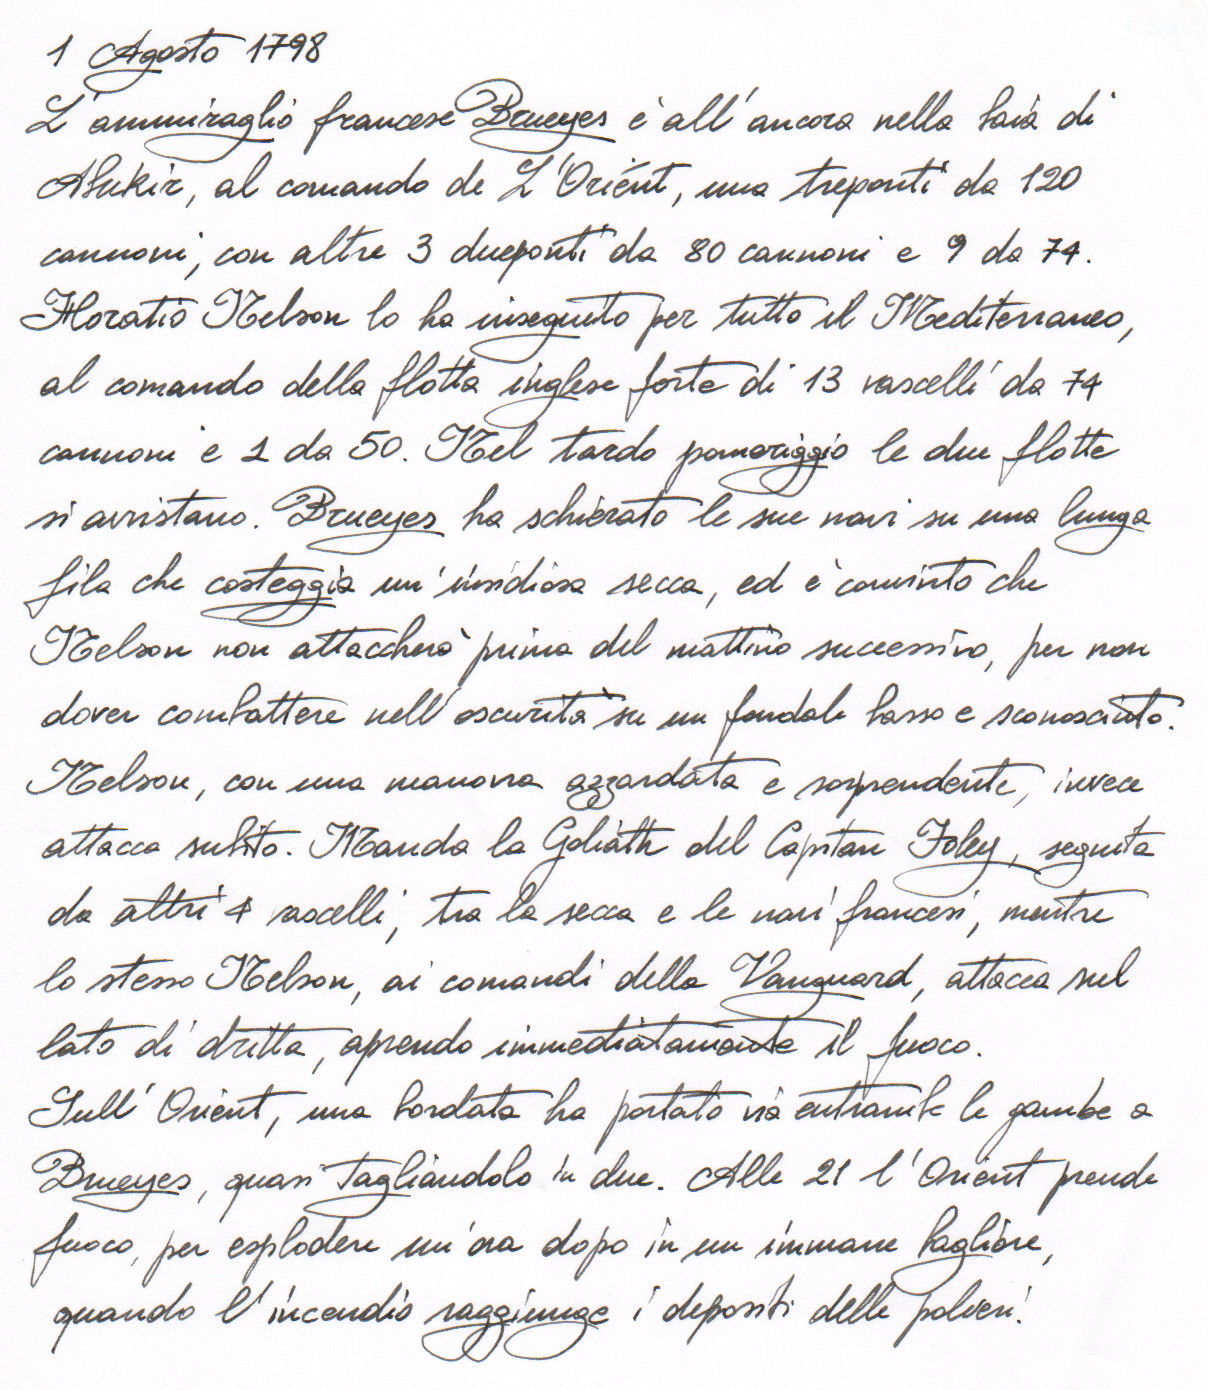 1 Agosto 1798
L'ammiraglio francese Brueyes è all'ancora nella baia di
Abukir, al comando de L'Orient, una treponti da 120
cannoni, con altre 3 dueponti da 80 cannoni e 9 da 74.
Horatio Nelson lo ha inseguito per tutto il Mediterraneo,
al comando della flotta inglese forte di 13 vascelli da 74
cannoni e 1 da 50. Nel tardo pomeriggio le due flotte
si avvistano. Brueyes ha schierato le sue navi su una lunga
fila che costeggia un'insidiosa secca, ed è convinto che
Nelson non attaccherà prima del mattino successivo, per non
dover combattere nell'oscurità su un fondale basso e sconosciuto.
Nelson, con una manovra azzardata e sorprendente, invece
attacca subito. Manda la Goliath del Capitan Foley, seguita
da altri 4 vascelli, tra la secca e le navi francesi, mentre
lo stesso Nelson, ai comandi della Vanguard, attacca sul
lato di dritta, aprendo immediatamente il fuoco.
Sull'Orient, una bordata ha portato via entrambe le gambe a
Brueyes, quasi tagliandolo in due. Alle 21 l'Orient prende
fuoco, per esplodere un'ora dopo in un immane bagliore,
quando l'incendio raggiunge i depositi delle polveri.